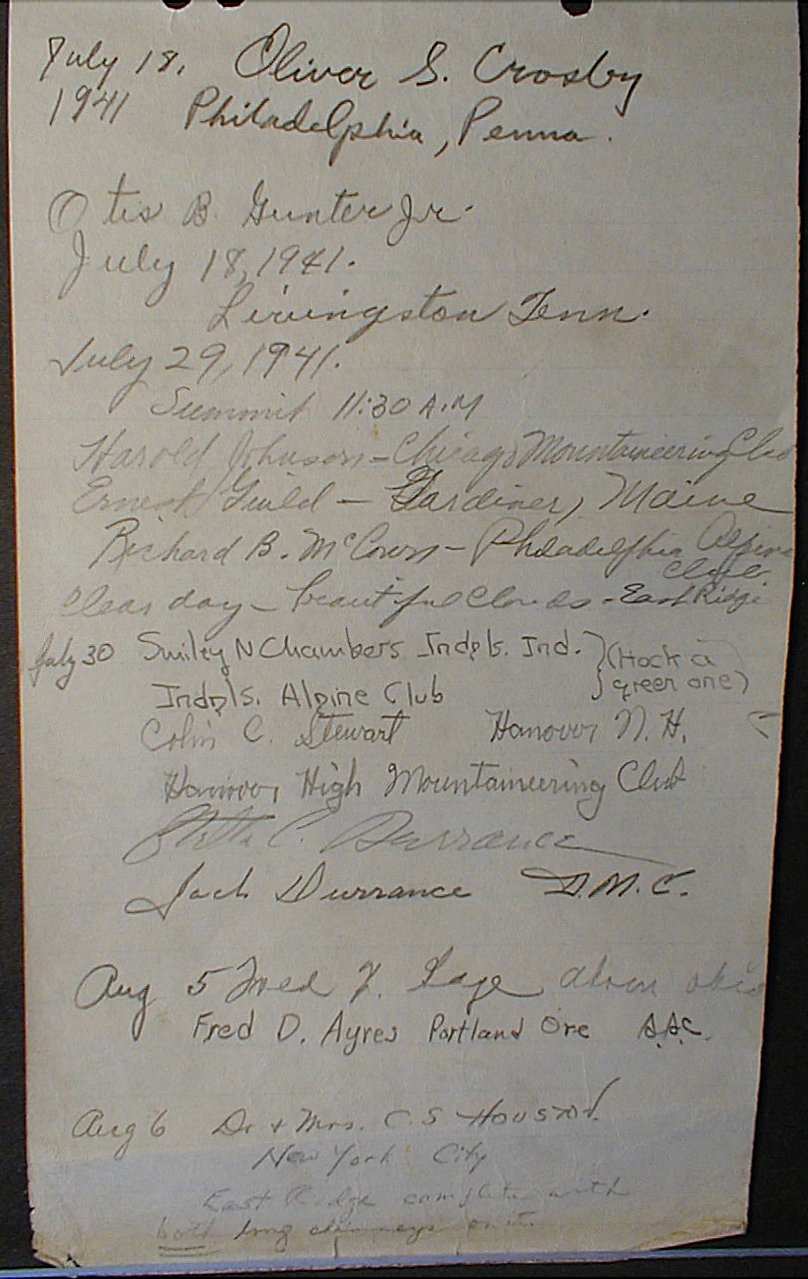 July 18, Oliver S. Crosby
1941 Philadelphia, Penna.
Otis B. Gunter Jr.
July 18, 1941.
Livingston Tenn.
July 29, 1941.
Summit 11:30 A.M
Harold Johnson - Chicago Mountaineering Club
Ernest Guild - Gardiner, Maine
Richard B. McCown - Philadelphia Alpine
Club
Clear day - beautiful clouds - East Ridge
July 30 Smiley N Chambers Indpls. Ind. } (Hock a
Indpls. Alpine Club } green one)
Colin C. Stewart Hanover N. H.
Hanover High Mountaineering Club
C. Durrance
Jack Durrance D.M.C.
Aug 5 Fred
Fred D. Ayres Portland Ore A.A.C.
Aug 6 Dr & Mrs. C. S Houston.
New York City
East Ridge complete with
both long chimneys on it.